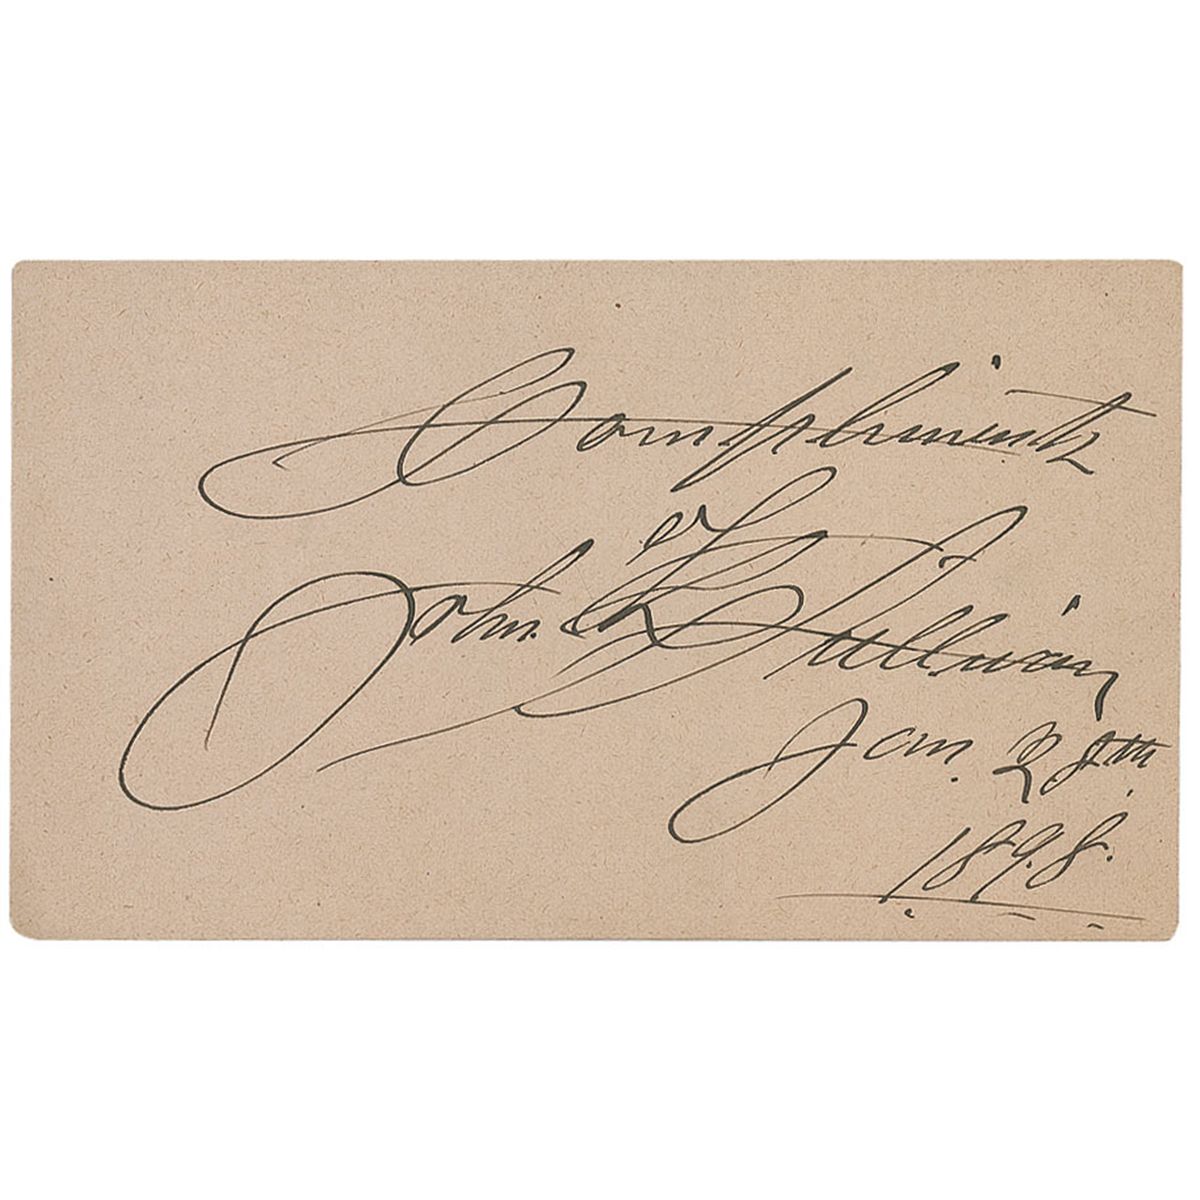 Compliments
of
John L Sullivan
Jan. 28th.
1898.